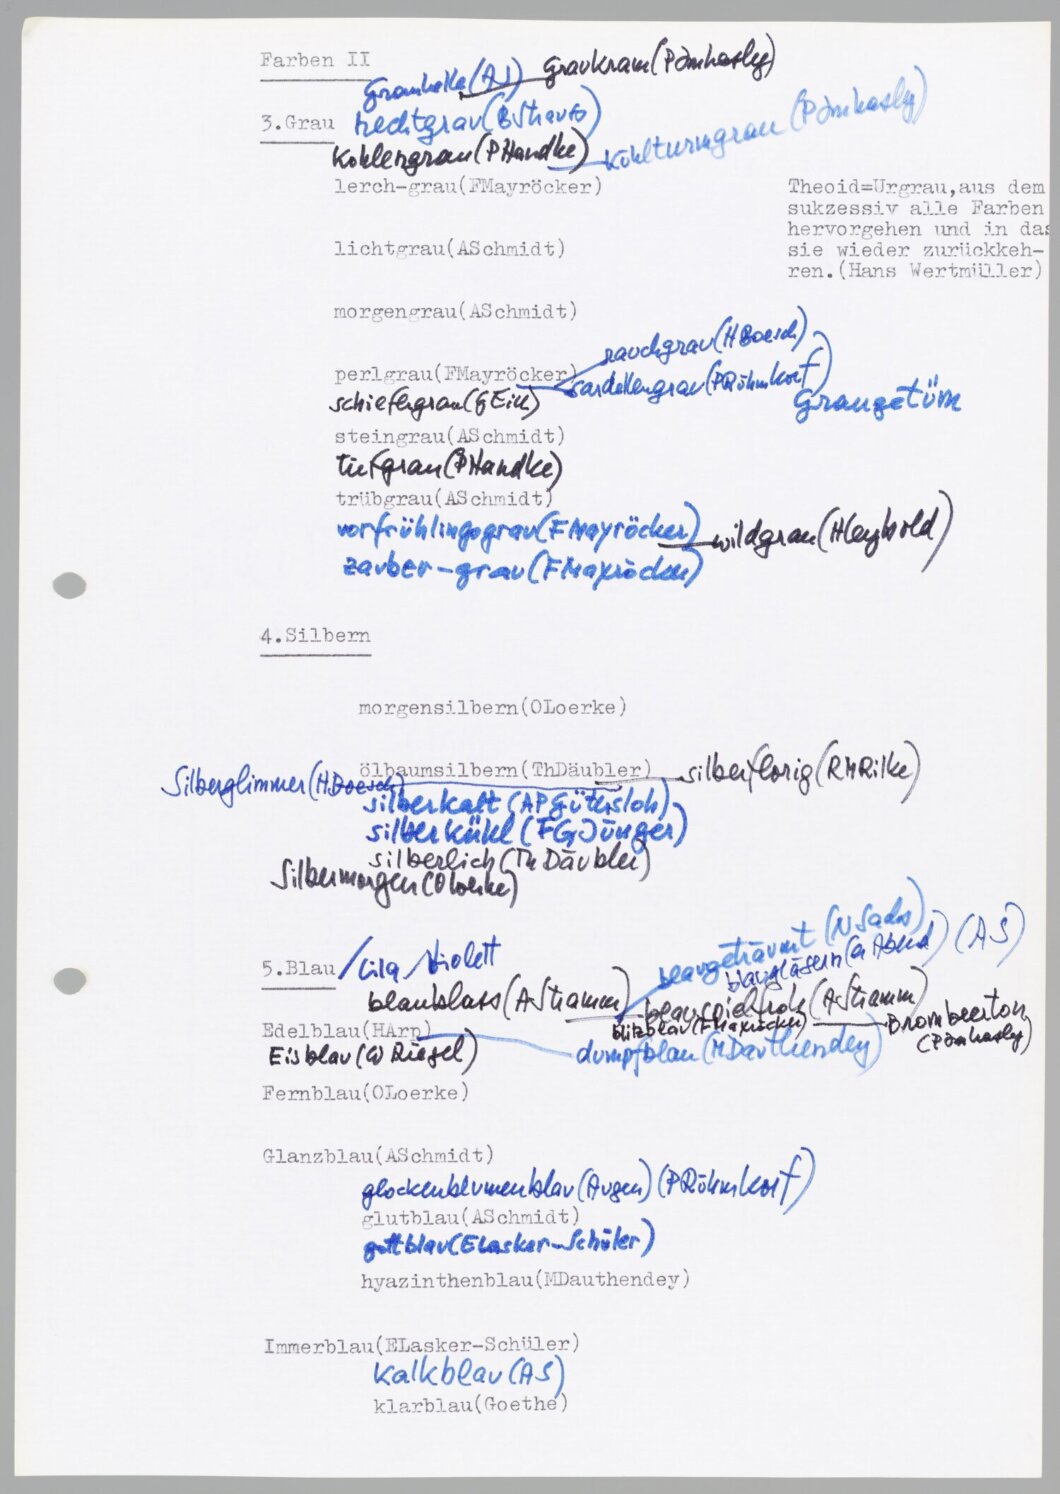 Farben II
graukram(PJmhasly)
(AS)
3.Grau
hechtgrau(BStrauß)
kohlengrau(PHandke)
kühlturmgrau(PJmhasly)
lerch-grau(FMayröcker)
Theoid=Urgrau,aus dem
sukzessiv alle Farben
hervorgehen und in das
sie wieder zurückkeh-
ren.(Hans Wertmüller)
lichtgrau(ASchmidt)
morgengrau(ASchmidt)
rauchgrau(HBoesch)
perlgrau(FMayröcker)
sardellengrau(PRühmkorf)
schiefergrau(GEich)
Graugetüm
steingrau(ASchmidt)
tiefgrau(PHandke)
trübgrau(ASchmidt)
vorfrühlingsgrau(FMayröcker)
wildgrau(HLeybold)
zauber-grau(FMayröcker)
4.Silbern
morgensilbern(OLoerke)
ölbaumsilbern(ThDäubler)
silberflorig(RMRilke)
Silberglimmer(HBoesch)
silberkalt(APGütersloh)
silberkühl(FGJünger)
silberlich(ThDäubler)
Silbermorgen(OLoerke)
5.Blau/Lila/Violett
blaugeträumt(NSachs)
blaugläsern (AS)
blaublass(AStramm)
(AStramm)
blitzblau(FMayröcker)
Brombeerton
(PJmhasly)
Edelblau(HArp)
dumpfblau(MDauthendey)
Eisblau(WRiegel)
Fernblau(OLoerke)
Glanzblau(ASchmidt)
glockenblumenblau(Augen)(PRühmkorf)
glutblau(ASchmidt)
gottblau(ELasker-Schüler)
hyazinthenblau(MDauthendey)
Immerblau(ELasker-Schüler)
kalkblau(AS)
klarblau(Goethe)